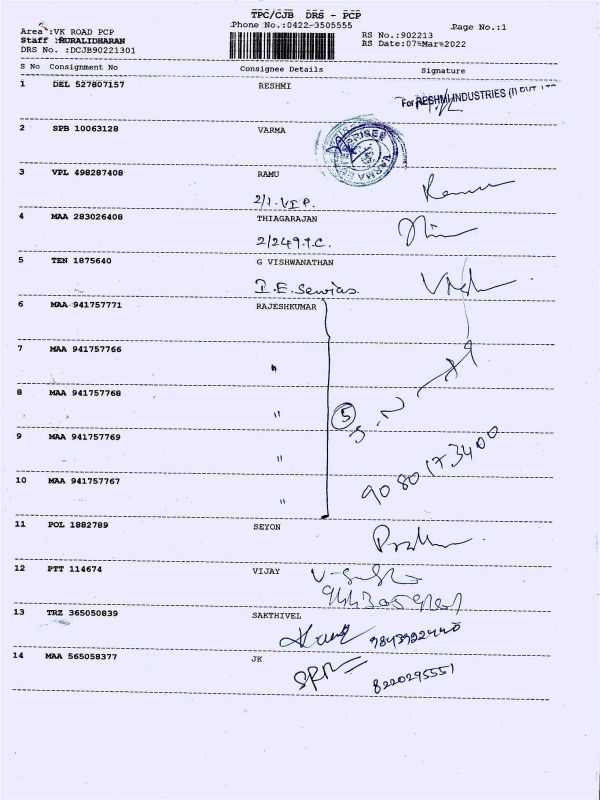 TPC/CJB DRS - PCP
Phone No.:0422-3505555
Page No.:1
Area :VK ROAD PCP
Staff :MURALIDHARAN
DRS No. :DCJB90221301
RS No.:902213
RS Date:07-Mar-2022
S No Consignment No Consignee Details Signature
1 DEL 527807157 RESHMI
For RESHMI INDUSTRIES (I) PVT LTD
2 SPB 10063128 VARMA
VARMA ENTERPRISES
3 VPL 498287408 RAMU
2/1. V.I.P.
4 MAA 283026408 THIAGARAJAN
2/249 T.C.
5 TEN 1875640 G VISHWANATHAN
6 MAA 941757771 RAJESHKUMAR
7 MAA 941757766 "
8 MAA 941757768 "
5
9 MAA 941757769 "
9080173400
10 MAA 941757767 "
11 POL 1882789 SEYON
12 PTT 114674 VIJAY
13 TRZ 365050839 SAKTHIVEL
14 MAA 565058377 JK
8220295551